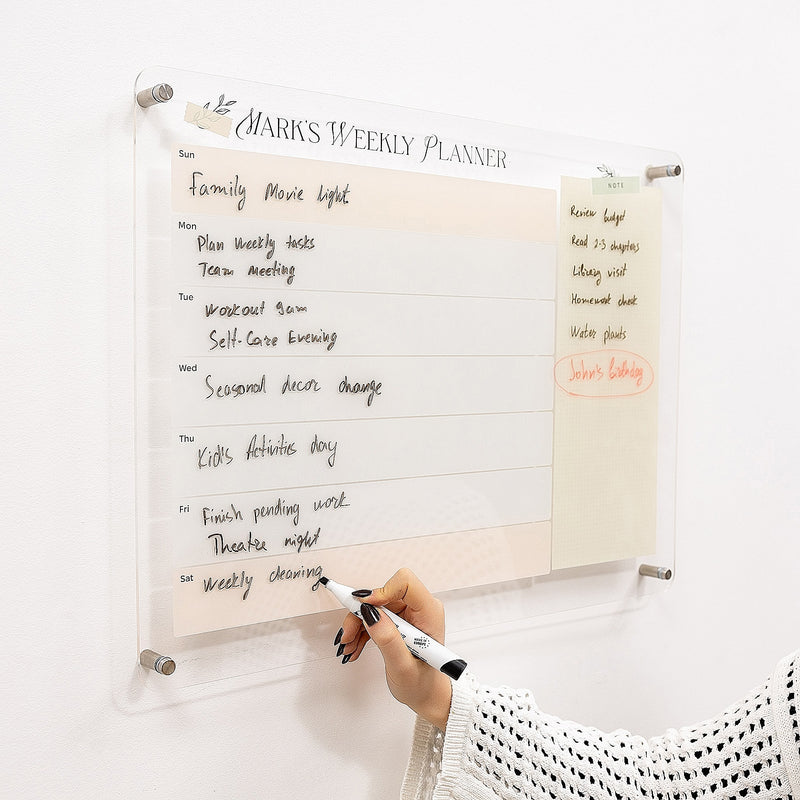 MARK'S WEEKLY PLANNER
Sun
Family Movie light
Mon
Plan Weekly tasks
Team meeting
Tue
Workout 9am
Self-Care Evening
Wed
Seasonal decor change
Thu
Kid's Activities day
Fri
Finish pending work
Theatre night
Sat
Weekly cleaning
NOTE
Review budget
Read 2-3 chapters
Library visit
Homework check
Water plants
John's birthday